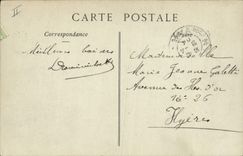 II
CARTE POSTALE
Correspondance
Meilleurs baisers
Mademoiselle
Marie Jeanne Galetti
Avenue des Iles d'or
N° 26
Hyères